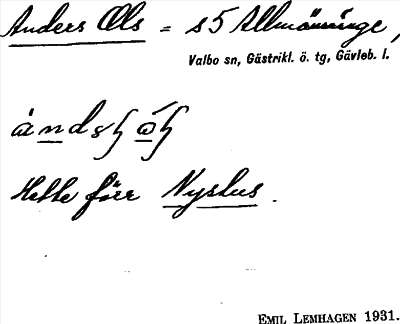 Anders Ols = s5 Allmänninge,
Valbo sn, Gästrikl. ö. tg, Gävleb. l.
Hette förr Nyslus.
EMIL LEMHAGEN 1931.